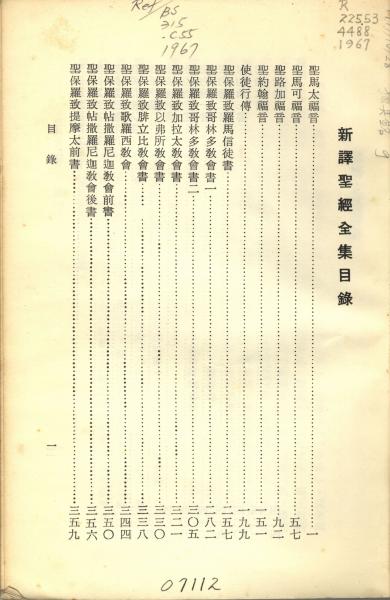 Ref
BS
315
.C55
1967
R
225.53
4488
1967
新譯聖經全集目錄
聖馬太福音⋯⋯一
聖馬可福音⋯⋯五七
聖路加福音⋯⋯九二
聖約翰福音⋯⋯一五一
使徒行傳⋯⋯一九九
聖保羅致羅馬信徒書⋯⋯二五七
聖保羅致哥林多教會書一⋯⋯二八二
聖保羅致哥林多教會書二⋯⋯三〇五
聖保羅致加拉太教會書⋯⋯三二一
聖保羅致以弗所教會書⋯⋯三三〇
聖保羅致腓立比教會書⋯⋯三三八
聖保羅致歌羅西教會書⋯⋯三四四
聖保羅致帖撒羅尼迦教會前書⋯⋯三五〇
聖保羅致帖撒羅尼迦教會後書⋯⋯三五六
聖保羅致提摩太前書⋯⋯三五九
目錄
一
07112